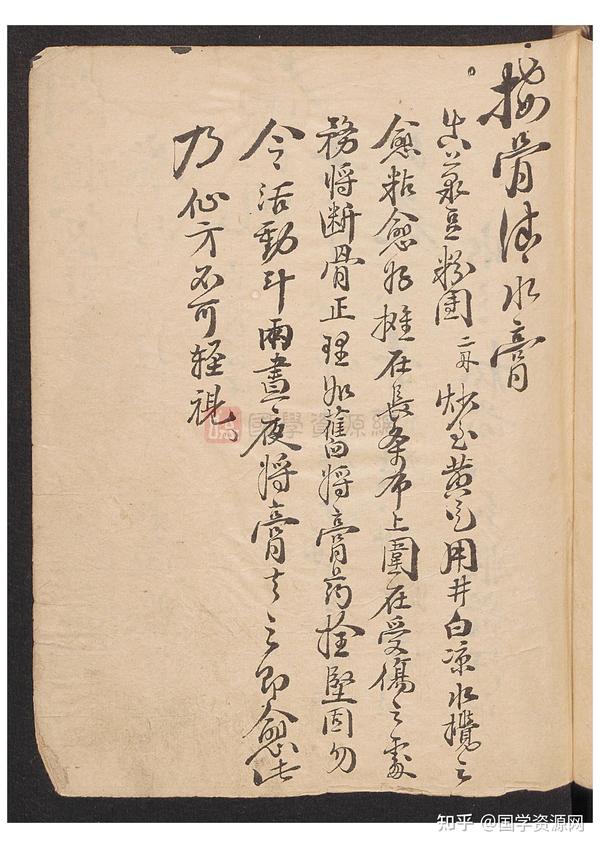 接骨清水膏
真菉豆粉團二兩炒至黄色用井白凉水攪之
愈粘愈好攤在長条布上圍在受傷之處
務將断骨正理如舊將膏药拴堅固勿
令活動斗兩晝夜將膏去之即愈此
乃仙方不可輕視
國學資源網
知乎 @国学资源网